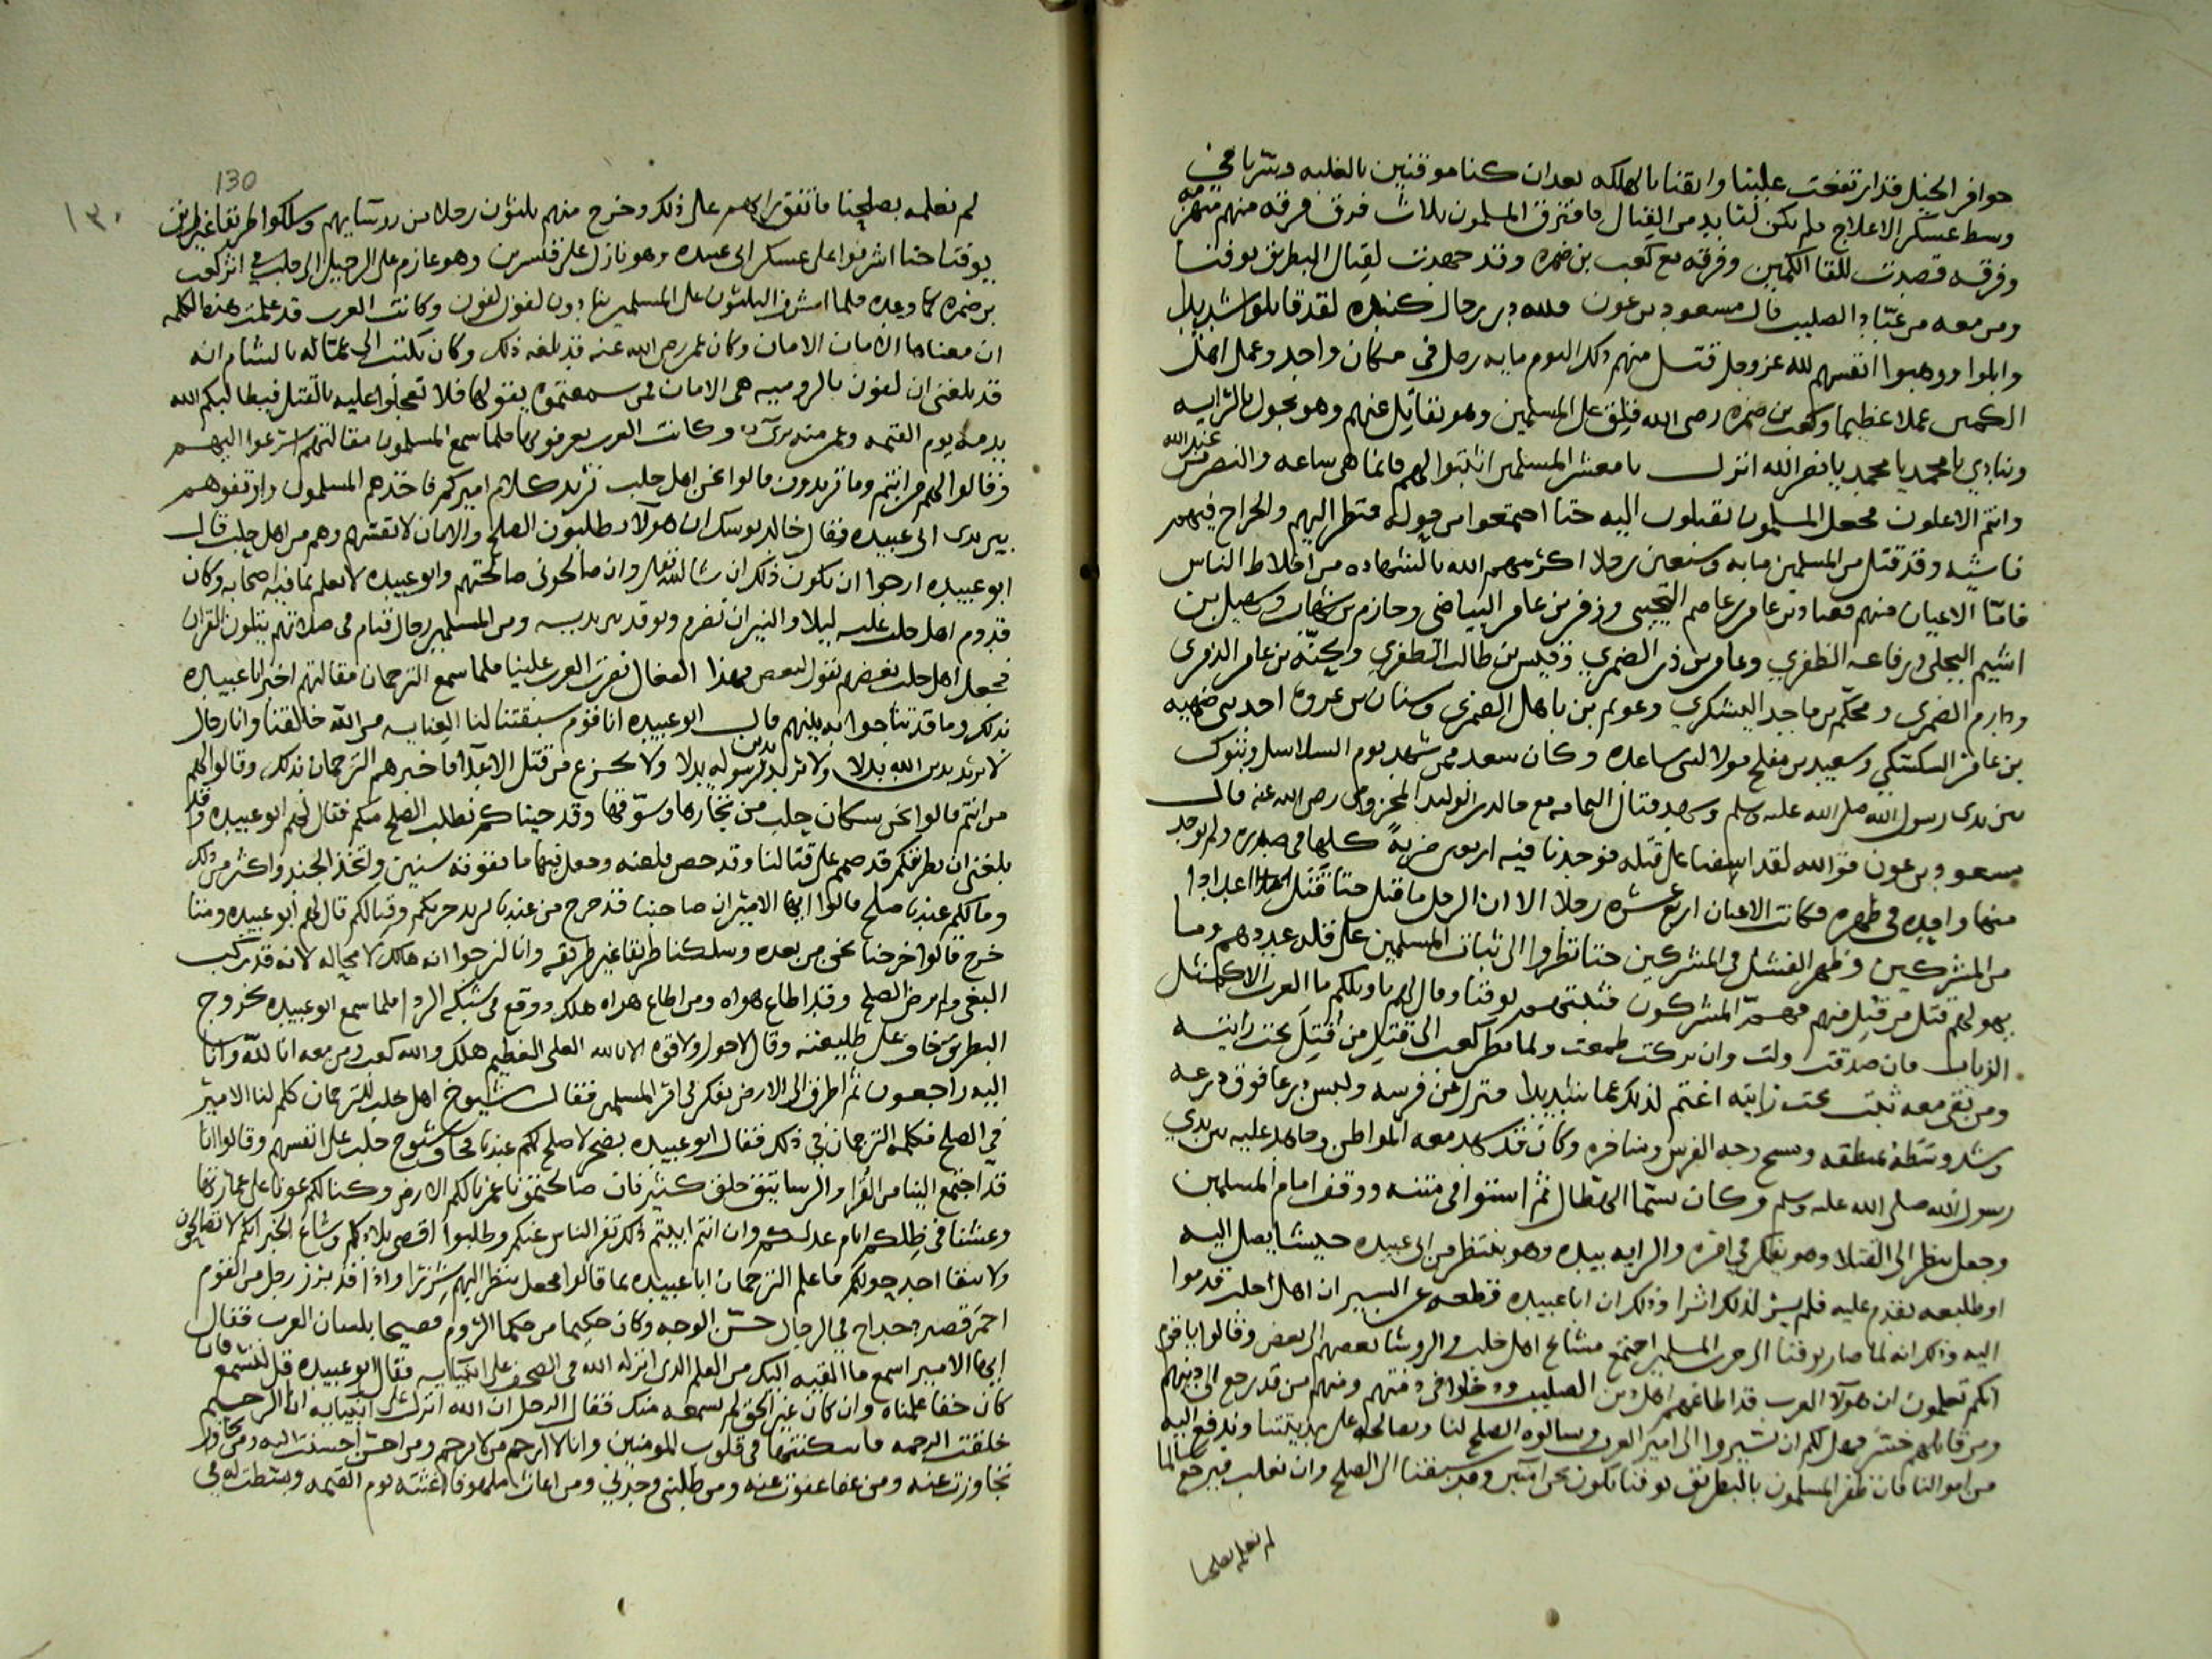 حوافر الخيل قد ارتفعت علينا وايقنا بالهلكه بعد ان كنا موقنين بالغلبه وسرنا في
وسط عسكر الاعلاج فلم يكن لنا بد من القتال فافترق المسلمون ثلاث فرق فرقه منهم
وفرقه قصدت للقا الكمين وفرقه مع كعب بن ضمره وقد جهدت لقتال البطريق يوقنا
ومن معه من عباد الصليب قال مسعود بن عون فلله در رجال كنده لقد قاتلوا شديدا
وابلوا ووهبوا انفسهم لله عز وجل قتل منهم ذلك اليوم مايه رجل في مكان واحد وعمل اهل
الكمين عملا عظيما وكعب بن ضمره رضى الله قلق على المسلمين وهو يقاتل عنهم وهو يجول بالرايه
وينادي يا محمد يا محمد يا نصر الله انزل يا معشر المسلمين اثبتوا لهم فانما هى ساعه والنصر من عند الله
وانتم الاعلون فجعل المسلمون يقبلون اليه حتا اجتمعوا من حوله فنظر اليهم والجراح فيهم
فاشيه وقد قتل من المسلمين مايه وسبعين رجلا اكرمهم الله بالشهاده من اخلاط الناس
فامّا الاعيان منهم فعباد بن عاصم وزفر بن عامر البياضى وحازم بن شهاب وسهيل بن
اشيم البجلى ورفاعه الظفري وعامر بن الضمري وقيس بن طالب الظفري بن عامر
ودارم الضمري ومحكّم بن ماجد اليشكري وعويم بن باهل الضمري وسنان بن عروه احد بنى
بن عامر السكسكي وسعيد بن مفلح مولا لبنى ساعده وكان سعد ممن شهد يوم السلاسل وتبوك
بين يدى رسول الله صلى الله عليه وسلم وشهد قتال اليمامه مع خالد بن الوليد المخزومى رضى الله عنه قال
مسعود بن عون فوالله لقد اسفنا على قتله فوجدنا فيه اربعين ضربةً كلها في صدره ولم يوجد
منها واحده في ظهره فكانت الاعيان اربعة عشره رجلا الا ان الرجل ما قتل حتا قتل اعدادا
من المشركين وظهر الفشل في المشركين حتا نظروا الى ثبات المسلمين على قله عددهم وما
يهولهم قتل من قتل منهم فهمّ المشركون فثبتهم يوقنا وقال لهم يا ويلكم ما العرب الا كمثل
الذباب فان صدقت ولت وان تركت طمعت ولما نظر كعب الى قتيل من اقتيل تحت رايته
ومن بقى معه ثبت تحت رايته اغتم لذلك غما شديدا ونزل عن فرسه ولبس درعا فوق درعه
وشد وسّطه بمنطقه ومسح وجه الفرس ومناخره وكان قد شهد معه المواطن وجاهد عليه بين يدي
رسول الله صلى الله عليه وسلم وكان سمّا الهطال ثم استوا في متنه ووقف امام المسلمين
وجعل ينظر الى القتلا وهو يفكر في امره والرايه بيده وهو ينتظر من ابى عبيده جيشا يصل اليه
او طليعه تقدم عليه فلم ير لذلك اثرا وذلك ان ابا عبيده قطعه عن المسير ان اهل حلب قدموا
اليه وذلك انه لما صار يوقنا الى حرب المسلمين اجتمع مشايخ اهل حلب والروسا بعضهم الى بعض وقالوا يا قوم
انكم تعلمون ان هولآ العرب قد اطاعهم اهل دين الصليب ودخلوا في ذمتهم ومنهم من قد رجع الى دينهم
ومن قاتلهم خسر فهل لكم ان تسيروا الى امير العرب وسالوه الصلح لنا ونصالحه على مدينتنا وندفع اليه
من اموالنا فان ظفر المسلمون بالبطريق يوقنا نكون نحن امنين وقد سبقنا الى الصلح وان نعلب فيرجع سالما
لم نعلمه بصلحنا
130
١٣٠
لم نعلمه بصلحنا فاتفق رايهم على ذلك وخرج منهم ثلثون رجلا من روسايهم وسلكوا طريقا غير طريق
يوقنا حتا اشرفوا على عسكر ابى عبيده وهو نازل على قنسرين وهو عازم على الرحيل الى حلب في اثر كعب
بن ضمره كما وعده فلما اشرف الثلثون على المسلمين ينادون لفون لفون وكانت العرب قد علمت هذه الكلمه
ان معناها الامان الامان وكان عمر رضى الله عنه قد بلغه ذلك وكان يكتب الى عمّاله بالشام انه
قد بلغنى ان لفون بالروميه هى الامان فمن سمعتموه يقولها فلا تعجلوا عليه بالقتل فيطالبكم الله
بدمه يوم القيمه وعمر منه برى وكانت العرب يعرفونها فلما سمع المسلمون مقالتهم اسرعوا اليهم
وقالوا لهم من انتم وما تريدون قالوا نحن اهل حلب نريد كلام اميركم فاخذهم المسلمون واوقفوهم
بين يدى ابى عبيده فقال خالد يوشك ان هولآ يطلبون الصلح والامان لانفسهم وهم من اهل حلب قال
ابو عبيده ارجوا ان يكون ذلك ان شا الله تعلى وان صالحونى صالحتهم وابو عبيده لا يعلم بما فيه اصحابه وكان
قدوم اهل حلب عليه ليلا والنيران تضرم وتوقد بين يديه ومن المسلمين رجال قيام في صلاتهم يتلون القران
فجعل اهل حلب بعضهم يقول لبعض بهذا الفعال نصرت العرب علينا فلما سمع الترجمان مقالتهم اخبر ابا عبيده
بذلك وما قد تناجوا به بينهم قال ابو عبيده انا قوم سبقت لنا العنايه من الله خالقنا وانا رجال
لا نريد بدين الله بدلا ولا نريد بدين رسوله بدلا ولا نجزع من قتل الاعدآ فاخبرهم الترجمان بذلك وقالوا لهم
من انتم قالوا نحن سكان حلب من تجارها وسوّقتها وقد جيناكم نطلب الصلح منكم فقال لهم ابو عبيده وقد
بلغنى ان بطريقكم قد صمم على قتالنا وقد حصن قلعته وجعل فيها ما يقوته سنين واتخذ الجند واكثر من ذلك
وما لكم عندنا صلح قالوا ايها الامير ان صاحبنا قد خرج من عندنا يريد حربكم وقتالكم قال لهم ابو عبيده ومتا
خرج قالوا خرجنا نحن من بعده وسلكنا طريقا غير طريقه وانا لنرجوا انه هالك لا محاله لانه قد ركب
البغى ولم يرض الصلح وقد اطاع هواه ومن اطاع هواه هلك ووقع في شبكه الردا فلما سمع ابو عبيده بخروج
البطريق خاف على طليعته وقال لا حول ولا قوه الا بالله العلى العظيم هلك والله كعب ومن معه انا لله وانا
اليه راجعون ثم اطرق الى الارض يفكر في امر المسلمين فقال شيوخ اهل حلب للترجمان كلم لنا الامير
في الصلح فكلمه الترجمان في ذلك فقال ابو عبيده بضجر لا صلح لكم عندنا فخافوا شيوخ حلب على انفسهم وقالوا انا
قد اجتمع الينا من القرا والرساتيق خلق كثير فان صالحتمونا عمرنا لكم الارض وكنا لكم عونا على عمارتها
وعشنا في ظلكم ايام عدلكم وان انتم ابيتم ذلك نفر الناس عنكم وطلبوا اقصى بلادكم وشاع الخبر انكم لا تصالحون
ولا يبقا احد حولكم فاعلم الترجمان ابا عبيده بما قالوا فجعل ينظر اليهم شزرا واذا قد برز رجل من القوم
احمر قصير دحداح في الرجال حسن الوجه وكان حكيما من حكما الروم فصيحا بلسان العرب فقال
ايها الامير اسمع ما القيه اليك من العلم الذى انزله الله في الصحف على انبيايه فقال ابو عبيده قل لنسمع فان
كان حقا علمناه وان كان غير الحق لم نسمعه منك فقال الرجل ان الله انزل على انبيايه انا الرحيم
خلقت الرحمه فاسكنتها في قلوب المومنين وانا لا ارحم من لا يرحم ومن احسن احسنت اليه ومن تجاوز
تجاوزت عنه ومن عفا عفوت عنه ومن طلبنى وجدني ومن اغاث ملهوفا اغثته يوم القيمه وبسطت له في